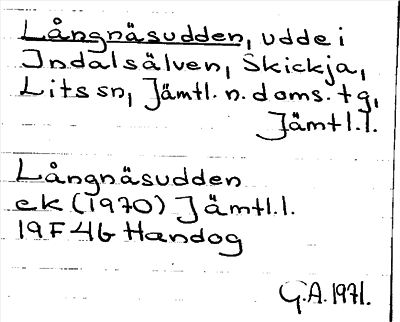 Långnäsudden, udde i
Indalsälven, Skickja,
Lits sn, Jämtl. n. doms. tg,
Jämtl.l.
Långnäsudden
ek (1970) Jämtl.l.
19F4b Handog
G.A. 1971.